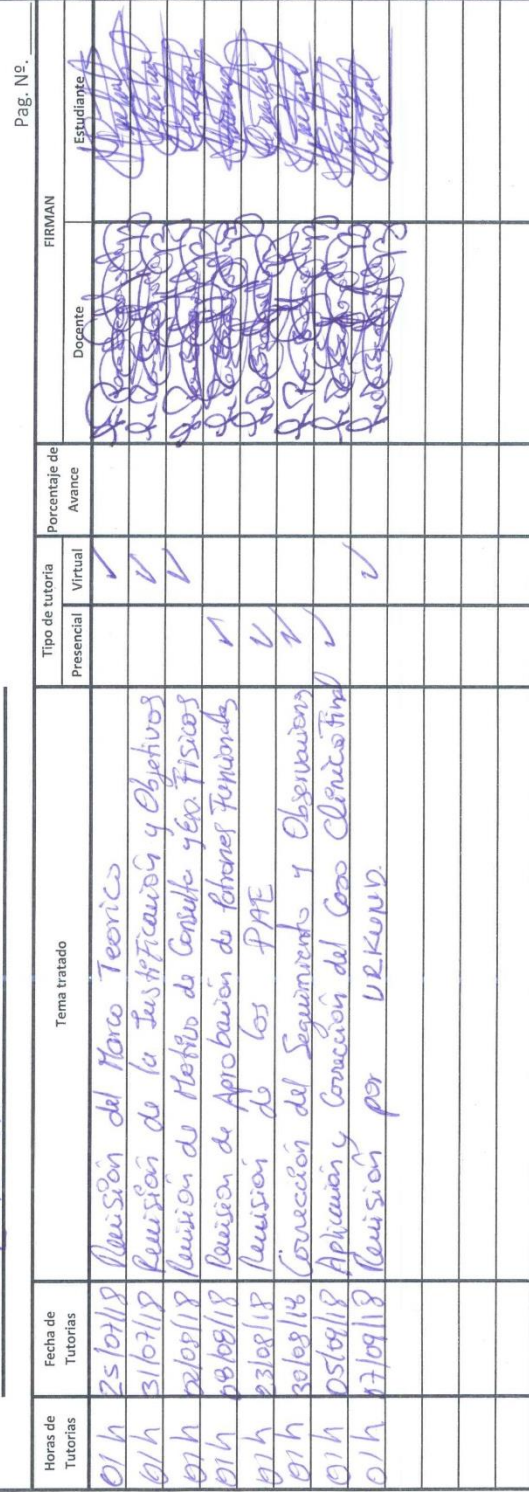 Pag. Nº. ____
Horas de Tutorias | Fecha de Tutorias | Tema tratado | Tipo de tutoria | Porcentaje de Avance | FIRMAN
Presencial | Virtual | Docente | Estudiante
01 h | 25/07/18 | Revisión del Marco Teorico | ✓
01 h | 31/07/18 | Revisión de la Justificación y Objetivos | ✓
01 h | 02/08/18 | Revisión de Motivo de Consulta y Exa. Físicos | ✓
01 h | 08/08/18 | Revisión de Aprobación de Patrones Funcionales | ✓
01 h | 23/08/18 | Revisión de los PAE | ✓
01 h | 30/08/18 | Corrección del Seguimiento y Observaciones | ✓
01 h | 05/09/18 | Aplicación y Corrección del Caso Clínico Final | ✓
01 h | 07/09/18 | Revisión por URKUND. | ✓